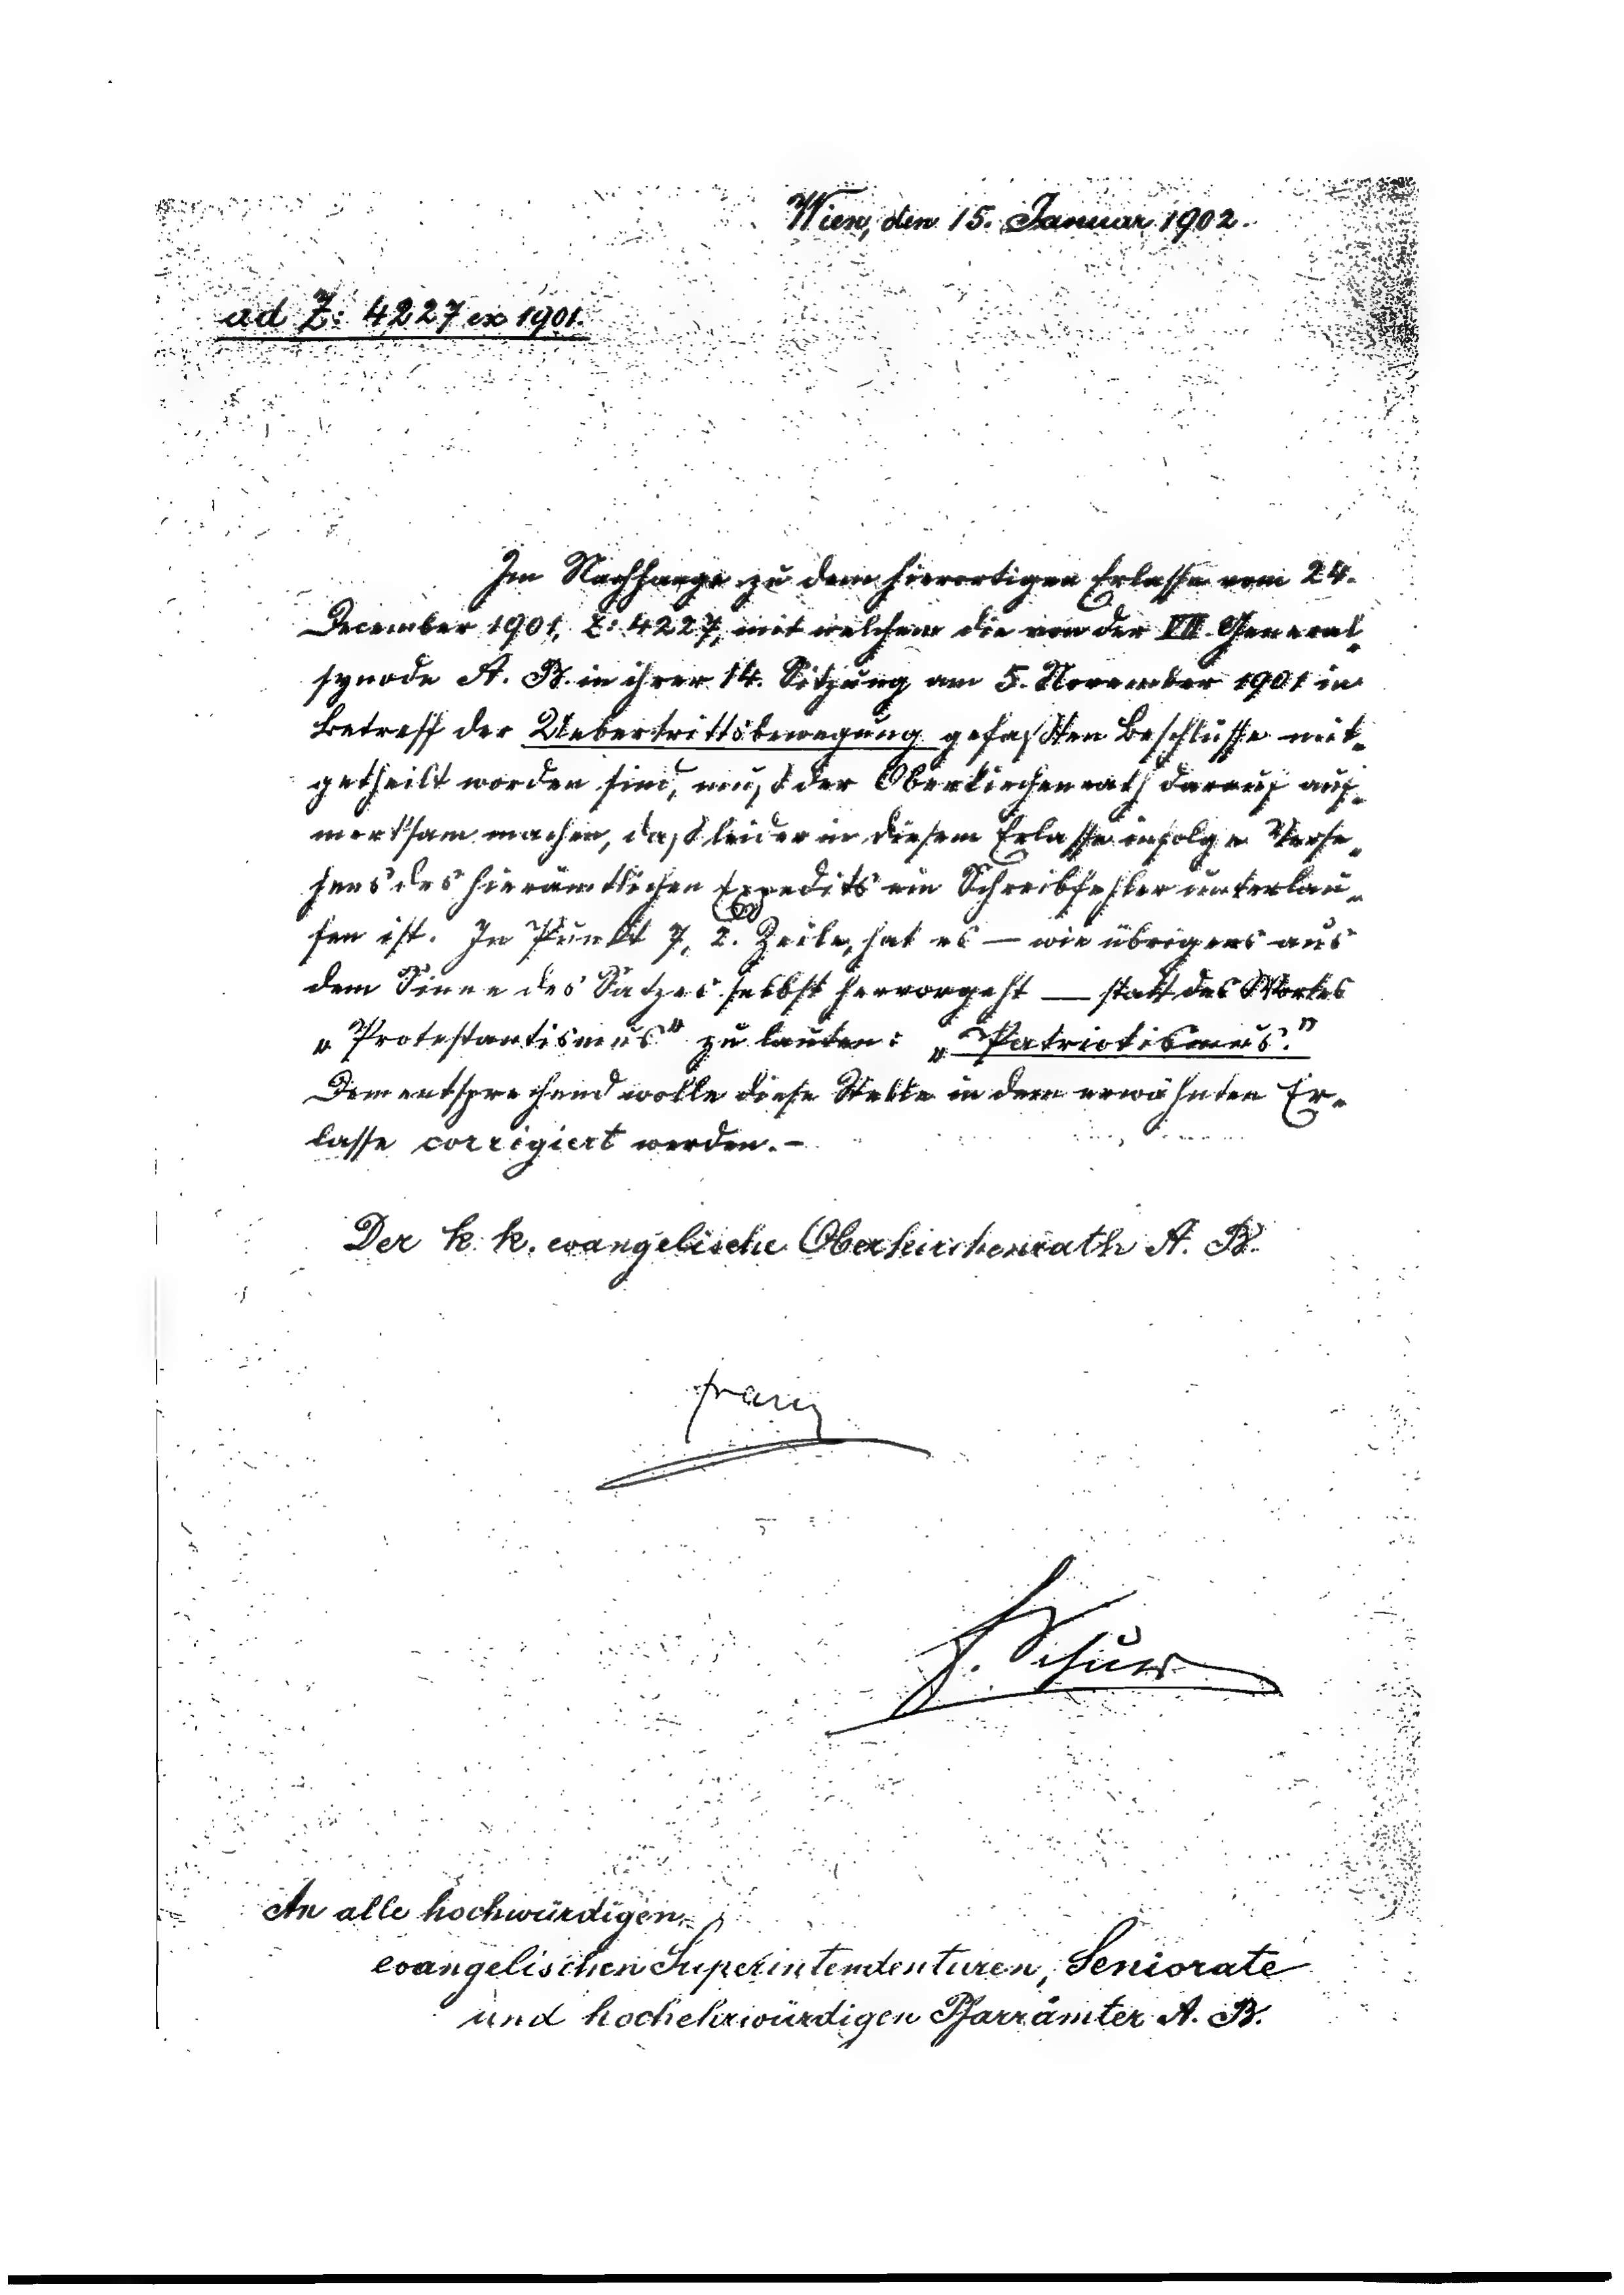 Wien, den 15. Januar 1902.
ad Z: 4227 ex 1901.
Im Nachhange zu dem hierortigen Erlasse vom 24.
December 1901, Z: 4227, mit welchem die von der VII. General-
synode A. B. in ihrer 14. Sitzung am 5. November 1901 in
Betreff der Uebertrittsbewegung gefaßten Beschlüsse mit-
getheilt worden sind, muß der Oberkirchenrath darauf auf-
merksam machen, daß leider in diesem Erlasse infolge Verse-
hens des hierämtlichen Expedits ein Schreibfehler unterlau-
fen ist. In Punkt 7, 2. Zeile, hat es — wie übrigens aus
dem Sinne des Satzes selbst hervorgeht — statt des Wortes
„Protestantismus" zu lauten: „Patriotismus."
Dementsprechend wolle diese Stelle in dem erwähnten Er-
lasse corrigiert werden. –
Der k. k. evangelische Oberkirchenrath A. B.
Franz
An alle hochwürdigen
evangelischen Superintendenturen, Seniorate
und hochehrwürdigen Pfarrämter A. B.